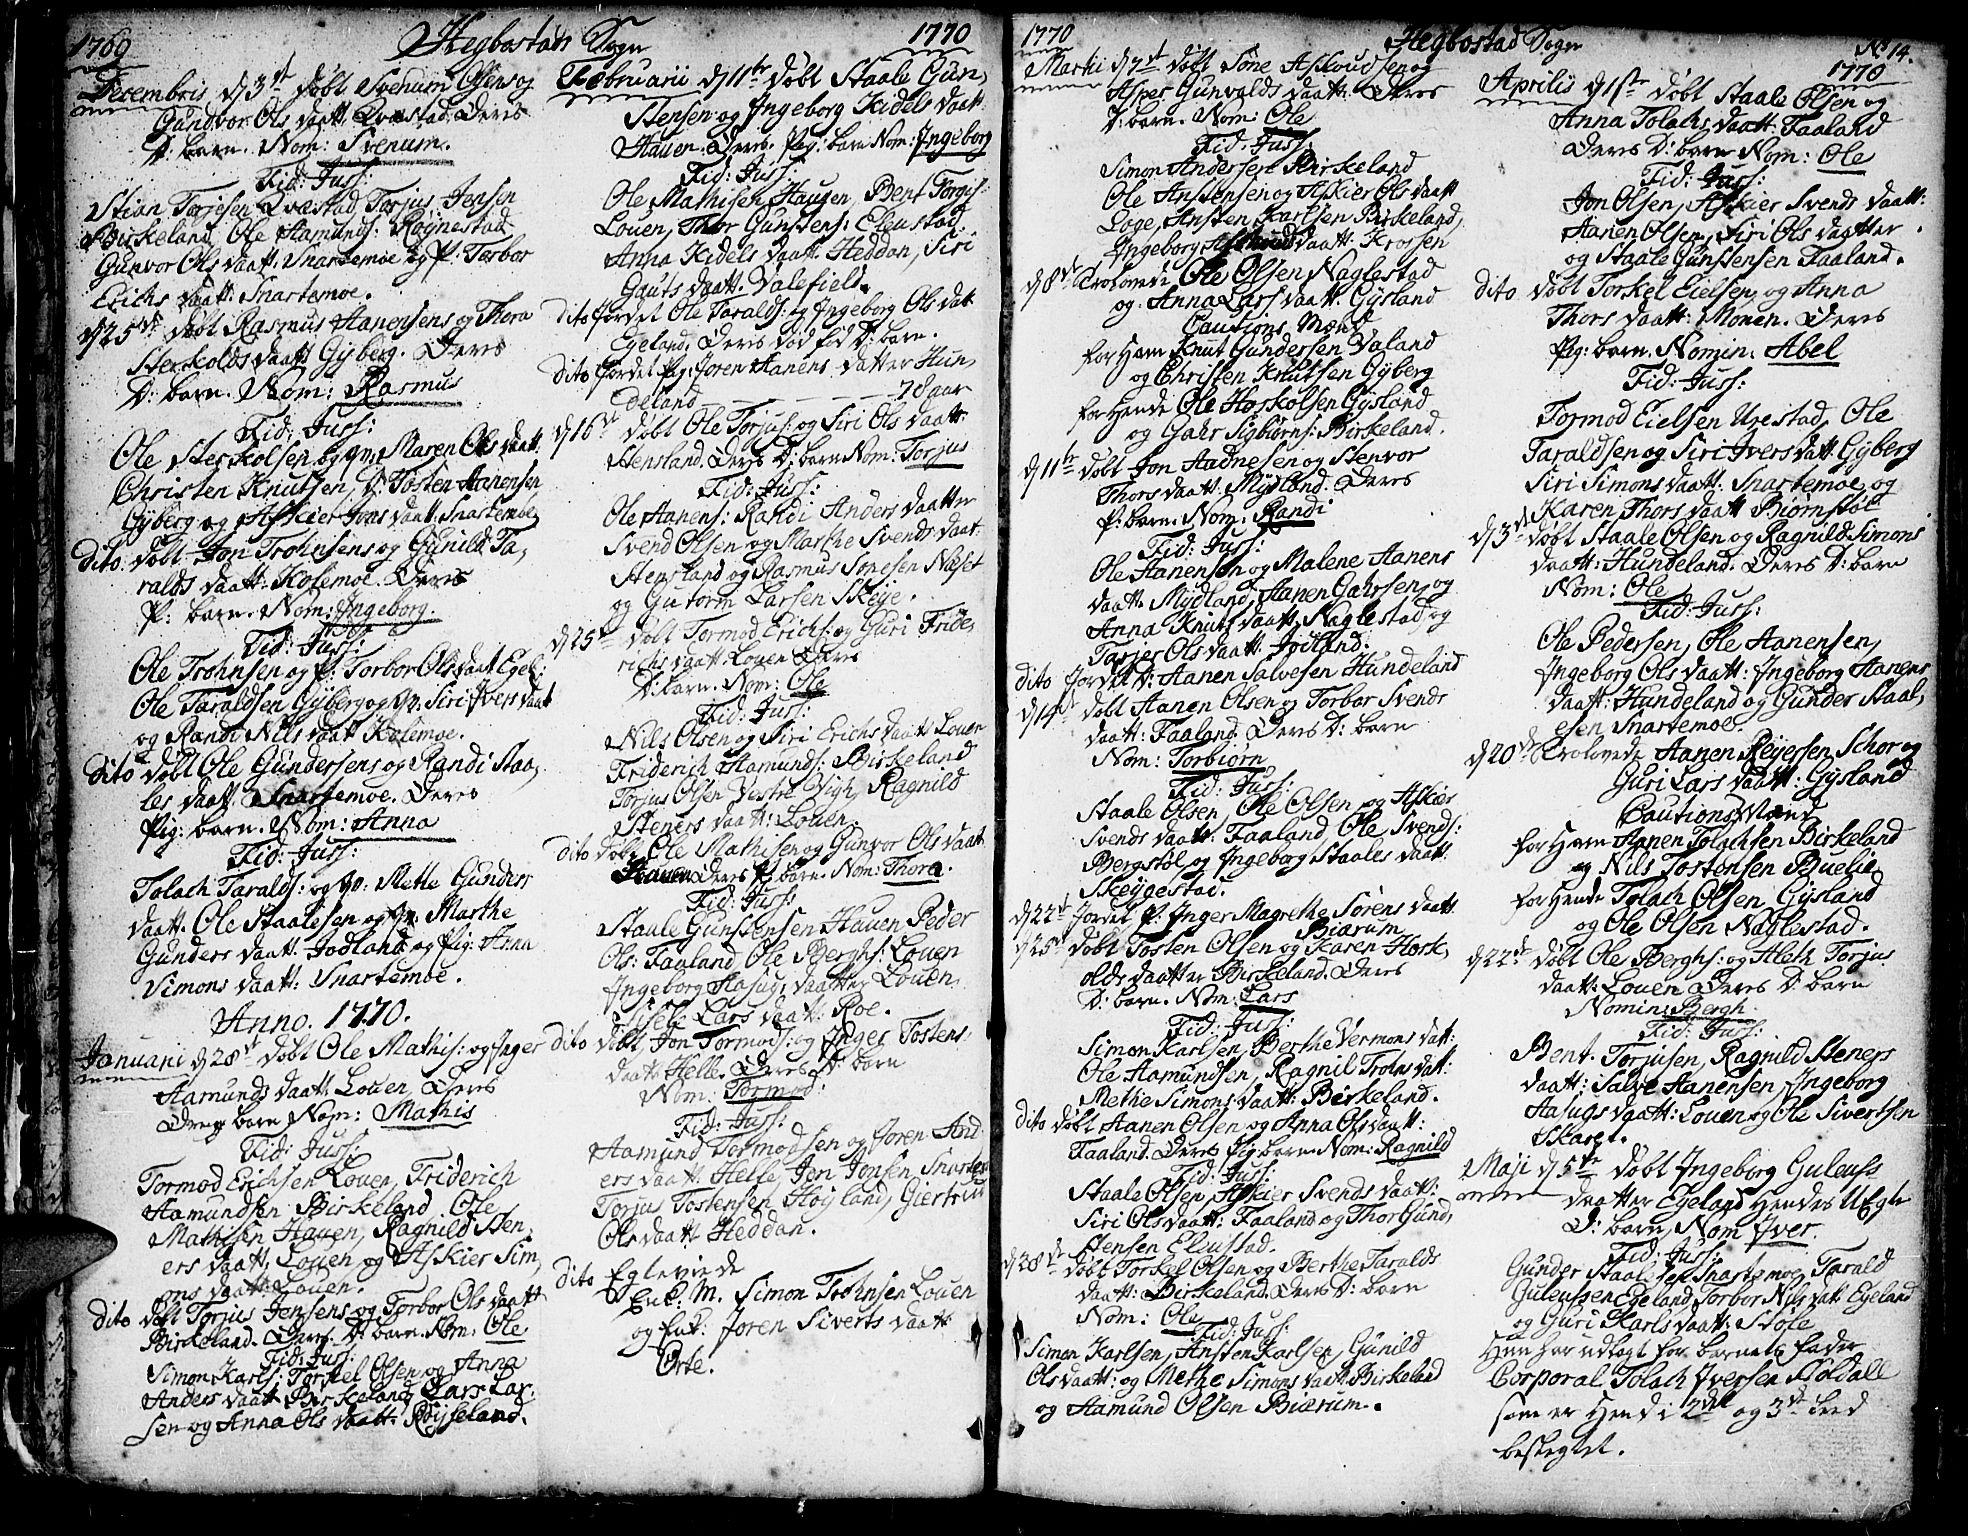 1769 Hegbostads Sogn 1770
Decembris d 3die døbt Svenum Olsens og
Gundvor Ols daatt. Qvæstad. Deres
D: barn. Nom: Svenum.
Fid: Juss:
Stian Torjesen Qvæstad, Torjus Jensen
Birkeland, Ole Aamunds: Røynestad
Gunvor Ols daatt. Snartemoe og P. Torbor
Erichs daatt: Snartemoe.
d 25de døbt Rasmus Aanensens og Thora
Herkolds daatt Gyberg. Deres
D: barn. Nom: Rasmus
Fid: Juss:
Ole Herkolsen og qv. Maren Ols daatt
Christen Knutsen, D: Tosten Aanensen
Gyberg og Askier Jons daatt. Snartemoe
dito døbt Jon Trohnsens og Gunild Ta,
ralds daatt: Kolemoe. Deres
P: barn. Nom: Ingeborg.
Fid: Juss:
Ole Trohnsen og P: Torbor Ols daat Egel:
Ole Taraldsen Gyberg og qv. Siri Ivers daat
og Randi Nils daatt Kolemoe.
dito døbt Ole Gundersens og Randi Staa,
les daatt. Snartemoe. Deres
Pig: barn. Nom: Anna
Fid: Juss:
Tolach Taralds: og qv: Methe Gunders
daatt. Ole Staalesen og qv. Marthe
Gunders daatt. Jodland og Pig: Anna
Simons daatt: Snartemoe.
Anno. 1770.
Januarii d 28de døbt Ole Mathis: og Inger
Aamunds daatt Louen, Deres
Drege barn Nom: Mathis
Fid: Juss:
Tormod Erichsen Louen, Friderich
Aamundsen Birkeland, Ole
Mathisen Hauen, Ragnild Sten,
ers daatt, Louen og Askier Sim,
ons daatt: Louen.
dito døbt Torjus Jensens og Torbor Ols daatt
Birkeland. Deres D: barn. Nom: Ole
Fid: Juss:
Simon Karls: Torkel Olsen og Anna
Anders daatt Birkeland, Lars Lar,
sen og Anna Ols daatt. Røysseland.
Februarii d 11te døbt Staale Gun,
stensen og Ingeborg Kidels daatt
Hauen. Deres. Pig: barn Nom: Ingeborg
Fid: Juss:
Ole Mathisen Hauen, Bent Torgis:
Louen, Thor Gunstens: Eleustad
Anna Kidels daatt. Heddan, Siri
Gauts daatt. Valefield.
dito Jordet Ole Taralds: og Ingeborg Ols dat
Egeland, Deres død fød D: barn.
dito Jordet Pig: Joren Aanens datter Hun,
deland — — — — 78 aar
d 16de døbt Ole Torjus: og Siri Ols daatt.
Stensland. Deres D: barn Nom: Torjus
Fid: Juss:
Ole Aanens: Randi Anders daatter
Svend Olsen og Marthe Svends daat:
Stensland og Rasmus Sonesen Næset
og Gutorm Larsen Skeye.
d 25de døbt Tormod Erichs: og Guri Fride,
richs daatt: Louen Deres
D: barn. Nom: Ole
Fid: Juss:
Nils Olsen og Siri Erichs daatt Louen
Friderich Aamunds: Birkeland
Torjus Olsen Vestre Vigh, Ragnild
Steners daatt: Louen.
dito døbt Ole Mathisen og Gunvor Ols daatt
Hauen Deres P. barn. Nom: Thora.
Fid: Juss:
Staale Gunstensen Hauen Peder
Ols: Faaland, Ole Berghs: Louen
Ingeborg Aasugs daatter Louen,
Lars daatt: Roe.
dito døbt, Jon Tormods: og Inger Tostens,
daatt: Helle. Deres D: barn
Nom: Tormod.
Fid: Juss:
Aamund Tormodsen og Joren And
ers daatt. Helle, Jon Jonsen Snartem
Torjus Tostensen Høyland, Giertrud
Ols daatt Heddan.
dito Egteviede
Enk: M. Simon Trohnsen Louen
og Enk: Joren Siverts daatt
Orte.
1770 Hegbostad Sogn No 14.
1770
Martii d 7de døbt Sone Askoudsen og
Asper Gunvalds daatt. Deres
D: barn. Nom: Ole
Fid: Juss:
Simon Andersen Birkeland
Ole Anstensen og Askier Ols daatt
Loge, Ansten Karlsen Birkeland,
Ingeborg Askouds daatt: Krossen
d 8de Trolovede Ole Olsen Naglestad
og Anna Lars daatt. Gysland
Cautions Mænd
for Ham Knut Gundersen Valand
og Christen Knutsen Gyberg
for Hende Ole Hoskolsen Gysland
og Gahr Sigbiørns: Birkeland.
d 11te døbt Jon Aadnesen og Stenvor
Thors daatt: Mydland. Deres
P: barn. Nom: Randi
Fid: Juss:
Ole Aanensen og Malene Aanens
daatt. Mydland, Aanen Gahrsen, og
Anna Knuts daatt. Naglestad, og
Tarjer Ols daatt. Jodland.
dito Jordet D: Aanen Salvesen Hundeland
d 14de døbt Aanen Olsen og Torbor Svends
daatt: Faaland. Deres D: barn
Nom: Torbiørn
Fid: Juss:
Staale Olsen, Ole Olsen og Askier
Svends daatt: Faaland, Ole Svends:
Bergstøl og Ingeborg Staales daatt.
Skeygestad.
d 22de Jordet P. Inger Magrethe Sørens daatt
Biærum
d 25de døbt Tosten Olsen og Karen Hosk,
olds daatter Birkeland. Deres
D: barn. Nom: Lars
Fid: Juss:
Simon Karlsen, Berthe Vermons datt:
Ole Aamundsen, Ragnil Trons datt:
Methe Simons daatt: Birkeland.
dito døbt Aanen Olsen og Anna Ols daatt:
Faaland. Deres Pig barn. Nom: Ragnild
Fid: Juss:
Staale Olsen, Askier Svends daatt:
Siri Ols daatt: Faaland og Thor Gund,
stensen Eleustad.
d 28de døbt Torkel Olsen og Berthe Taralds
daatt: Birkeland. Deres D: barn
Nom: Ole
Fid: Juss:
Simon Karlsen, Ansten Karlsen, Gunild
Ols daatt: og Methe Simons daatt. Birkeland
og Aamund Olsen Biærum.
Aprilis d 1ste døbt Staale Olsen og
Anna Tolachs daatt. Faaland
Deres D: barn Nom: Ole
Fid: Juss:
Jon Olsen, Askier Svends daatt:
Aanen Olsen, Siri Ols daatter
og Staale Gunstensen Faaland.
dito døbt Torkel Eielsen og Anna
Thors daatt: Monen. Deres
Pig: barn. Nomin: Abel
Fid: Juss:
Tormod Eielsen Urestad, Ole
Taraldsen og Siri Ivers datt: Gyberg
Siri Simons daatt. Snartemoe og
Karen Thors daatt Biørnstøl
d 3de døbt Staale Olsen og Ragnild Simons
daatt: Hundeland. Deres D: barn
Nom: Ole
Fid: Juss:
Ole Pedersen, Ole Aanensen,
Ingeborg Ols daatt: Ingeborg Aanens
daatt: Hundeland og Gunder Staal,
esen Snartemoe.
d 20de Trolovede Aanen Reyersen Schor og
Guri Lars daatt: Gysland
Cautions Mænd
for Ham Aanen Tolachsen Birkeland
og Nils Tostensen Buelid
for Hende Tolach Olsen Gysland
og Ole Olsen Naglestad.
d 22de døbt Ole Berghs: og Aleth Torjus
daatt: Louen Deres D: barn
Nomin: Bergh.
Fid: Juss:
Bent Torjusen, Ragnild Steners
daatt: Salve Aanensen, Ingeborg
Aasugs daatt: Louen og Ole Sivertsen
Skaret.
Maji d 5te døbt Ingeborg Guleuss
daatter Egeland Hendes UEgte
D: barn, Nom Iver.
Fid: Juss:
Gunder Staalesen Snartemoe, Tarald
Guleussen Egeland, Torbor Nils datt: Egeland
og Guri Karls daatt: Stole
Hun har udlagt for barnets fader
Corporal Tolach Iversen Koldall
som er Hend i 2det og 3de leed
beslegtet.